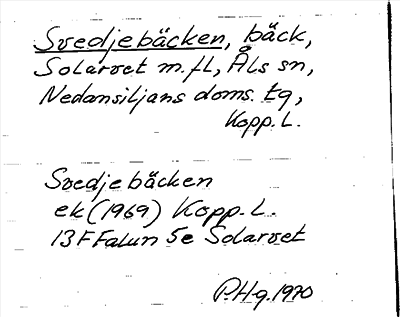 Svedjebäcken, bäck,
Solarvet m.fl, Åls sn,
Nedansiljans doms. tg,
Kopp. L.
Svedjebäcken
ek (1969) Kopp. L.
13 F Falun 5e Solarvet
P.Hg. 1970